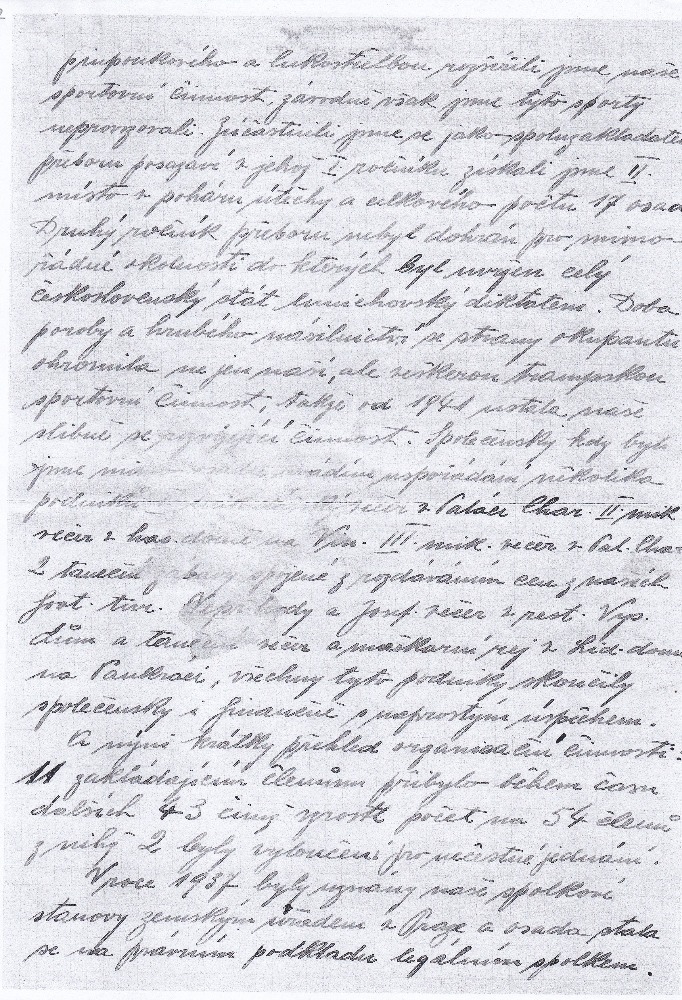 a lukostřelbou rozšířili jsme naše
sportovní činnost, závodně však jsme tyto sporty
neprovozovali. Zúčastnili jsme se jako spoluzakladatel
přeboru v jehož I ročníku získali jsme II.
místo v poháru útěchy a celkového počtu 17 osad
Druhý ročník přeboru nebyl dohrán pro mimo-
řádné okolnosti do kterých byl uvržen celý
československý stát mnichovský diktátem. Doba
poroby a hrubého násilnictví se strany okupantů
ohromila ne jen naší, ale veškerou trampskou
sportovní činnost, takže od 1941 ustala naše
slibně se rozvíjející činnost. Společensky kdy byli
jsme uspořádání několika
podniků večer v Paláci Char. II mik
večer v has. domě na Vin. III mik. večer v Pal. Cha-
2 taneční zábavy spojené z rozdáváním cen z našich
fot. tur. hody a Josef. večer v rest. Vyp.
dům a taneční večer a maškarní rej v Lid. domě
na Pankráci, všechny tyto podniky skončily
společensky i finančně s naprostým úspěchem.
A nyní krátký přehled organisační činnosti:
11 zakládajícím členům přibylo během času
dalších 43 čímž vzrostl počet na 54 členů
z nihž 2 byly vyloučeni pro nečestné jednání.
V roce 1937 byly uznány naše spolkové
stanovy zemským úřadem v Praze a osada stala
se na právním podkladu legálním spolkem.